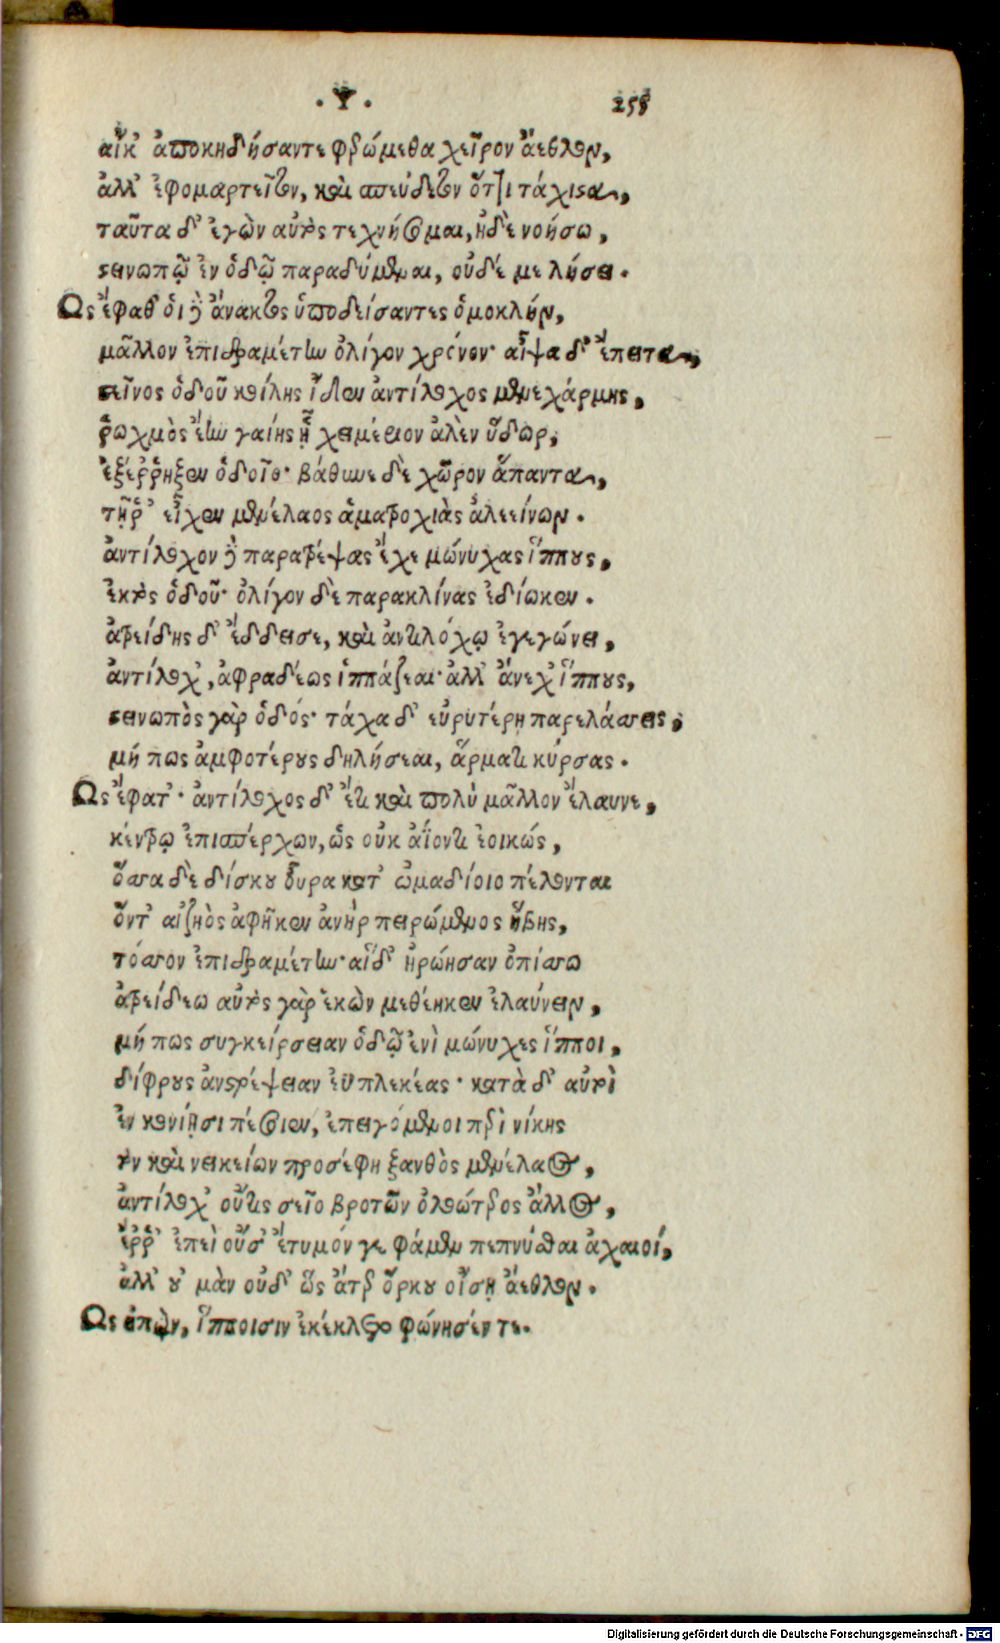 ·Ψ· 255
αἴκ' ἀποκηδήσαντε φερώμεθα χεῖρον ἄεθλον,
ἀλλ' ἐφομαρτεῖτον, καὶ σπεύδετον ὅττι τάχιστα,
ταῦτα δ' ἐγὼν αὐτὸς τεχνήσομαι, ἠδὲ νοήσω,
στεινωπῷ ἐν ὁδῷ παραδύμεναι, οὐδέ με λήσει.
Ως ἔφαθ' οἱ δὲ ἄνακτος ὑποδείσαντες ὁμοκλήν,
μᾶλλον ἐπιδραμέτην ὀλίγον χρόνον· αἶψα δ' ἔπειτα,
στεῖνος ὁδοῦ κοίλης ἴδεν ἀντίλοχος μενεχάρμης,
ῥωχμὸς ἔην γαίης ᾗ χειμέριον ἀλὲν ὕδωρ,
ἐξέρρηξεν ὁδοῖο· βάθυνε δὲ χῶρον ἅπαντα,
τῇ ῥ' εἶχεν μενέλαος ἁματροχιὰς ἀλεείνων.
ἀντίλοχον δὲ παρατρέψας ἔχε μώνυχας ἵππους,
ἐκτὸς ὁδοῦ· ὀλίγον δὲ παρακλίνας ἐδίωκεν.
ἀτρείδης δ' ἔδδεισε, καὶ ἀντιλόχῳ ἐγεγώνει,
ἀντίλοχ', ἀφραδέως ἱππάζεαι· ἀλλ' ἄνεχ' ἵππους,
στεινωπὸς γὰρ ὁδός· τάχα δ' εὐρυτέρη παρελάσσεις,
μή πως ἀμφοτέρους δηλήσεαι, ἅρματι κύρσας.
Ως ἔφατ'· ἀντίλοχος δ' ἔτι καὶ πολὺ μᾶλλον ἔλαυνε,
κέντρῳ ἐπισπέρχων, ὡς οὐκ ἀΐοντι ἐοικώς,
ὅσσα δὲ δίσκου οὖρα κατ' ὠμαδίοιο πέλονται
ὅντ' αἰζηὸς ἀφῆκεν ἀνὴρ πειρώμενος ἥβης,
τόσσον ἐπιδραμέτην· αἵδ' ἠρώησαν ὀπίσσω
ἀτρείδεω αὐτὸς γὰρ ἑκὼν μεθέηκεν ἐλαύνειν,
μή πως συγκείρσειαν ὁδῷ ἐνὶ μώνυχες ἵπποι,
δίφρους ἀνστρέψειαν ἐϋπλεκέας· κατὰ δ' αὐτοὶ
ἐν κονίῃσι πέσοιεν, ἐπειγόμενοι περὶ νίκης
τὸν καὶ νεικείων προσέφη ξανθὸς μενέλαος,
ἀντίλοχ' οὔτις σεῖο βροτῶν ὀλοώτερος ἄλλος,
ἔρρ' ἐπεὶ οὔσ' ἔτυμόν γε φάμεν πεπνύσθαι ἀχαιοί,
ἀλλ' οὐ μὰν οὐδ' ὧς ἄτερ ὅρκου οἴσῃ ἄεθλον.
Ως εἰπὼν, ἵπποισιν ἐκέκλετο φώνησέν τε.
Digitalisierung gefördert durch die Deutsche Forschungsgemeinschaft - DFG